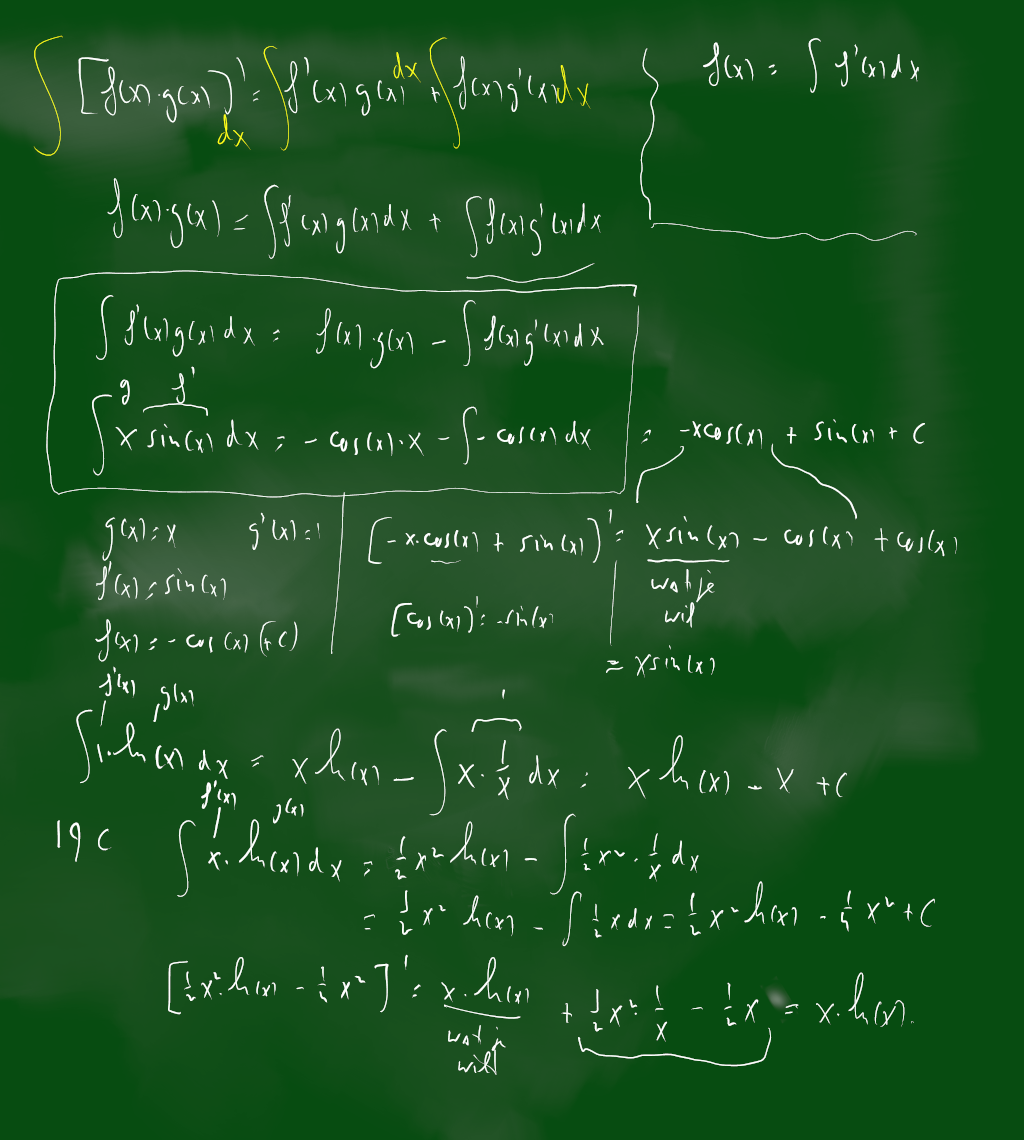 ∫ [f(x)·g(x)]' dx = ∫ f'(x) g(x) dx + ∫ f(x) g'(x) dx
f(x) = ∫ f'(x) dx
f(x)·g(x) = ∫ f'(x) g(x) dx + ∫ f(x) g'(x) dx
∫ f'(x) g(x) dx = f(x)·g(x) - ∫ f(x) g'(x) dx
g f'
∫ x sin(x) dx = - cos(x)·x - ∫ - cos(x) dx = -x cos(x) + sin(x) + C
g(x) = x g'(x) = 1
[-x·cos(x) + sin(x)]' = x sin(x) - cos(x) + cos(x)
f'(x) = sin(x)
wat je
wil
[cos(x)]' = -sin(x)
f(x) = - cos(x) (+ C)
= x sin(x)
f'(x) g(x)
1
∫ 1·ln(x) dx = x ln(x) - ∫ x · 1/x dx = x ln(x) - x + C
f'(x) g(x)
19 c ∫ x·ln(x) dx = 1/2 x² ln(x) - ∫ 1/2 x² · 1/x dx
= 1/2 x² ln(x) - ∫ 1/2 x dx = 1/2 x² ln(x) - 1/4 x² + C
[1/2 x² · ln(x) - 1/4 x²]' = x · ln(x) + 1/2 x² · 1/x - 1/2 x = x · ln(x).
wat je
wilt